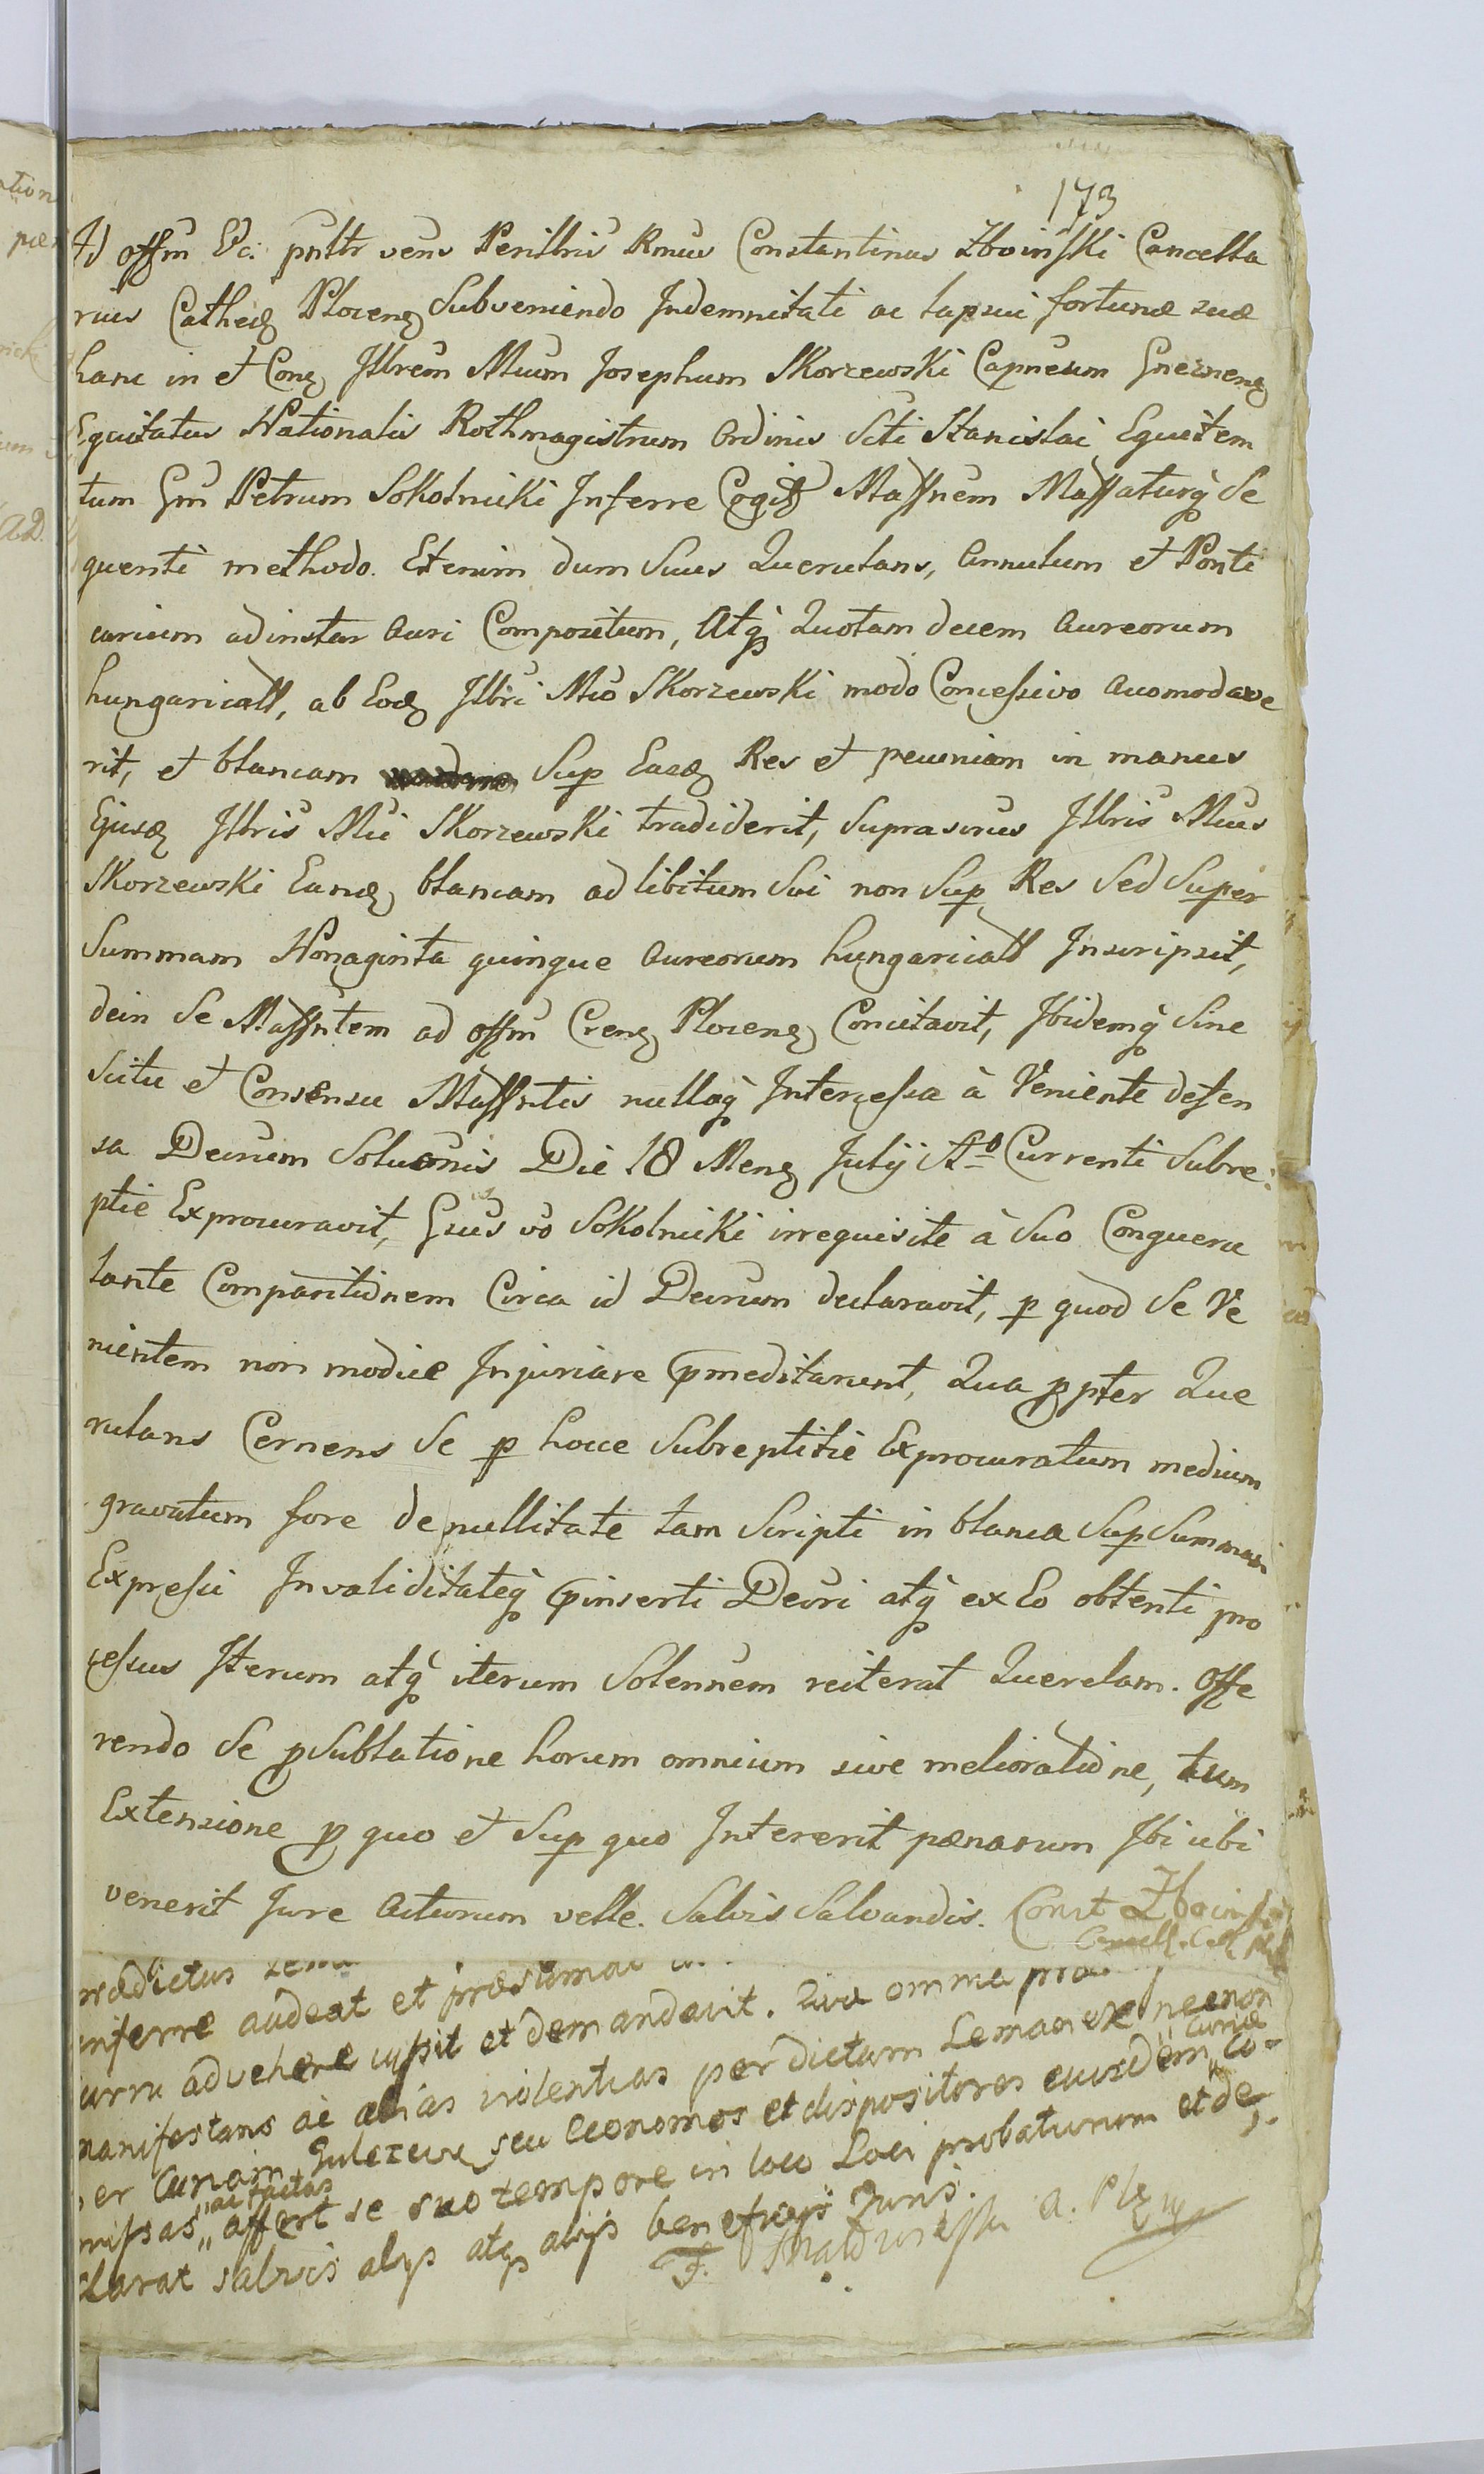 173
Ad offm &c. pnltr vens Perillris Rmus Constantinus Zboinski Cancella
rius Cathed Plocens Subveniendo Indemnitati ac lapsui fortunæ suæ
hanc in et Conq Illrem Mum Josephum Skorzewski Capneum Gneznens
Equitatus Nationalis Rothmagistrum Ordinis Scti Stanislai Equitem
tum Gm Petrum Sokolnicki Inferre Cogit Maffnem Maffaturq Se
quenti methodo. Etenim dum Suus Querulans, Annulum et Ponti
carium adinstar Auri Compositum, Atq Quotam decem Aureorum
hungaricall, ab Eod Illri Mio Skorzewski modo Concessivo Acomodave
rit, et blancam Sup Easd Res et pecuniam in manus
Ejusd Illris Mii Skorzewski tradiderit, Suprascrus Illris Mius
Skorzewski Eand blancam ad libitum Sui non Sup Res Sed Super
Summam Nonaginta quinque Aureorum hungaricall Inscripsit,
dein Se Maffntem ad offm Crens Plocens Concitavit, Ibidemq Sine
Scitu et Consensu Maffntis nullaq Intercessa à Veniente defen
sa Decrum Soluonis Die 18 Mens Julij Ao Currenti Subre
ptie Exprocuravit, Gsus vo Sokolnicki irrequisite à Suo Conqueru
lante Comparitionem Circa id Decrum declaravit, p quod Se Ve
nientem non modice Injuriare pmeditarunt, Qua ppter Que
rulans Cernens Se p hocce Subreptitie Exprocuratum medium
gravatum fore de nullitate tam Scripti in blanca Sup Summam
Expressi Invaliditateq pinserti Decri atq ex Eo obtenti pro
cessus Iterum atq iterum Solennem reiterat Querelam. Offe
rendo Se p Sublatione horum omnium sive melioratione, tum
Extensione p quo et Sup quo Intererit pænarum Ibi ubi
venerit Jure Acturum velle. Salvis Salvandis. Const Zboinski
Cancell. Cath Pl
rædictus
inferre audeat et præsumat
curru advehere iussit et demandavit. Quæ omnia
manifestans ac alias violentias per dictum Lemanex necnon
curiæ
er Curiam Gulczew seu Œconomos et dispositores eiusdem co-
ac factas
missas offert se suo tempore in loco Loci probaturum et de
clarat salvis alijs atq alijs beneficijs Juris.
F.